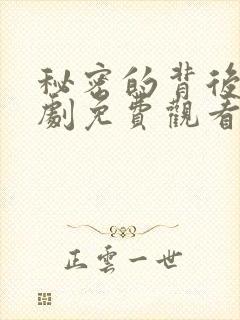 秘密的背後
劇免費觀看
正雲一世